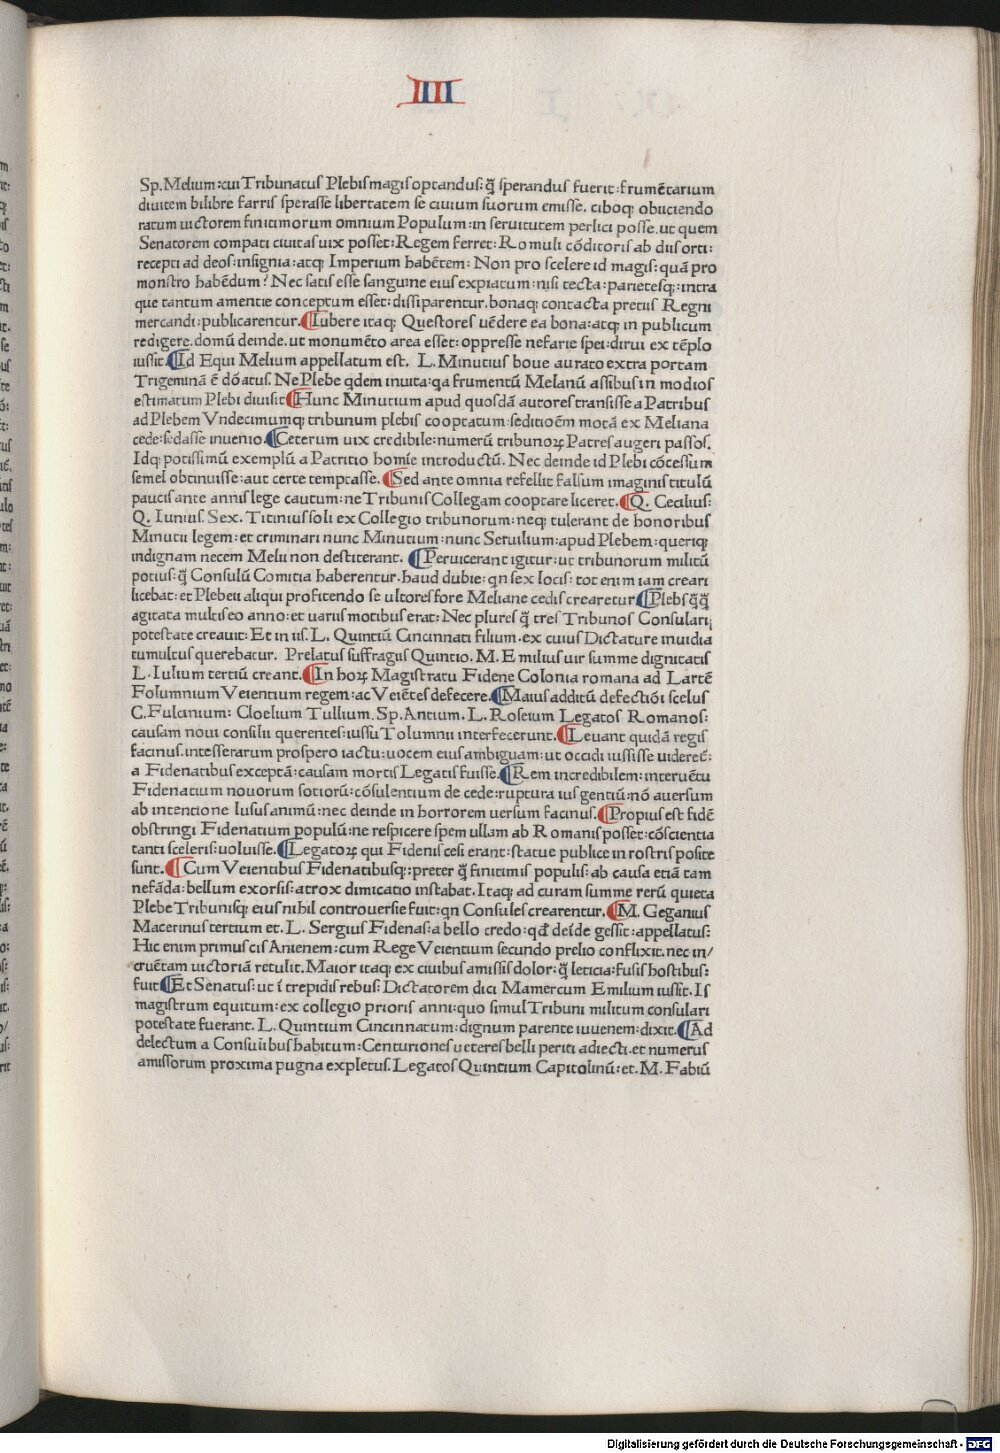 IIII
Sp. Melium: cui Tribunatus Plebis magis optandus: q̃ sperandus fuerit: frumẽtarium
diuitem bilibre farris sperasse libertatem se ciuium suorum emisse. ciboq; obiiciendo
ratum uictorem finitimorum omnium Populum: in seruitutem perlici posse. ut quem
Senatorem compati ciuitas uix posset: Regem ferret: Romuli cõditoris ab diis orti:
recepti ad deos: insignia: atq; Imperium habẽtem: Non pro scelere id magis: quã pro
monstro habẽdum? Nec satis esse sanguine eius expiatum: nisi tecta: parietesq;: intra
que tantum amentie conceptum esset: dissiparentur. bonaq; contacta pretiis Regni
mercandi: publicarentur. ¶Iubere itaq; Questores uẽdere ea bona: atq; in publicum
redigere. domũ deinde. ut monumẽto area esset: oppresse nefarie spei: dirui ex tẽplo
iussit. ¶Id Equi Melium appellatum est. L. Minutius boue aurato extra portam
Trigeminã ẽ dõatus. Ne Plebe qdem inuita: qa frumentũ Melanũ assibus in modios
estimatum Plebi diuisit ¶Hunc Minutium apud quosdã autores transisse a Patribus
ad Plebem Vndecimumq; tribunum plebis cooptatum: seditioẽm motã ex Meliana
cede: sedasse inuenio. ¶Ceterum uix credibile: numerũ tribunoꝝ Patres augeri passos.
Idq; potissimũ exemplũ a Patritio homĩe introductũ. Nec deinde id Plebi cõcessum
semel obtinuisse: aut certe temptasse. ¶Sed ante omnia refellit falsum imaginis titulũ
paucis ante annis lege cautum: ne Tribunis Collegam cooptare liceret. ¶Q. Cecilius:
Q. Iunius. Sex. Titinius soli ex Collegio tribunorum: neq; tulerant de honoribus
Minutii legem: et criminari nunc Minutium: nunc Seruilium: apud Plebem: queriq;
indignam necem Melii non destiterant. ¶Peruicerant igitur: ut tribunorum militũ
potius: q̃ Consulũ Comitia haberentur. haud dubie: qn sex locis: tot enim iam creari
licebat: et Plebeii aliqui profitendo se ultores fore Meliane cedis crearetur ¶Plebs q̃q̃
agitata multis eo anno: et uariis motibus erat: Nec plures q̃ tres Tribunos Consulari
potestate creauit: Et in iis. L. Quintiũ Cincinnati filium. ex cuius Dictature inuidia
tumultus querebatur. Prelatus suffragiis Quintio. M. Emilius uir summe dignitatis
L. Iulium tertiũ creant. ¶In hoꝝ Magistratu Fidene Colonia romana ad Lartẽ
Folumnium Veientium regem: ac Veiẽtes defecere. ¶Maius additũ defectiõi scelus
C. Fulcinium: Cloelium Tullium. Sp. Antium. L. Roscium Legatos Romanos:
causam noui consilii querentes: iussu Tolumnii interfecerunt. ¶Leuant quidã regis
facinus. in tesserarum prospero iactu: uocem eius ambiguam: ut occidi iussisse uideret̃:
a Fidenatibus exceptã: causam mortis Legatis fuisse. ¶Rem incredibilem: interuẽtu
Fidenatium nouorum sotiorũ: cõsulentium de cede: ruptura ius gentiũ: nõ auersum
ab intentione lusus animũ: nec deinde in horrorem uersum facinus. ¶Propius est fidẽ
obstringi Fidenatium populũ: ne respicere spem ullam ab Romanis posset: cõscientia
tanti sceleris: uoluisse. ¶Legatoꝝ qui Fidenis cesi erant: statue publice in rostris posite
sunt. ¶Cum Veientibus Fidenatibusq;: preter q̃ finitimis populis: ab causa etiã tam
nefãda: bellum exorsis: atrox dimicatio instabat. Itaq; ad curam summe rerũ quieta
Plebe Tribunisq; eius nihil controuersie fuit: qn Consules crearentur. ¶M. Geganius
Macerinus tertium et. L. Sergius Fidenas: a bello credo: qd̃ deĩde gessit: appellatus:
Hic enim primus cis Anienem: cum Rege Veientium secundo prelio conflixit. nec in/
cruẽtam uictoriã retulit. Maior itaq; ex ciuibus amissis dolor: q̃ leticia: fusis hostibus:
fuit ¶Et Senatus: ut ĩ trepidis rebus: Dictatorem dici Mamercum Emilium iussit. Is
magistrum equitum: ex collegio prioris anni: quo simul Tribuni militum consulari
potestate fuerant. L. Quintium Cincinnatum: dignum parente iuuenem: dixit. ¶Ad
delectum a Consulibus habitum: Centuriones ueteres belli periti adiecti. et numerus
amissorum proxima pugna expletus. Legatos Quintium Capitolinũ: et. M. Fabiũ
Digitalisierung gefördert durch die Deutsche Forschungsgemeinschaft - DFG